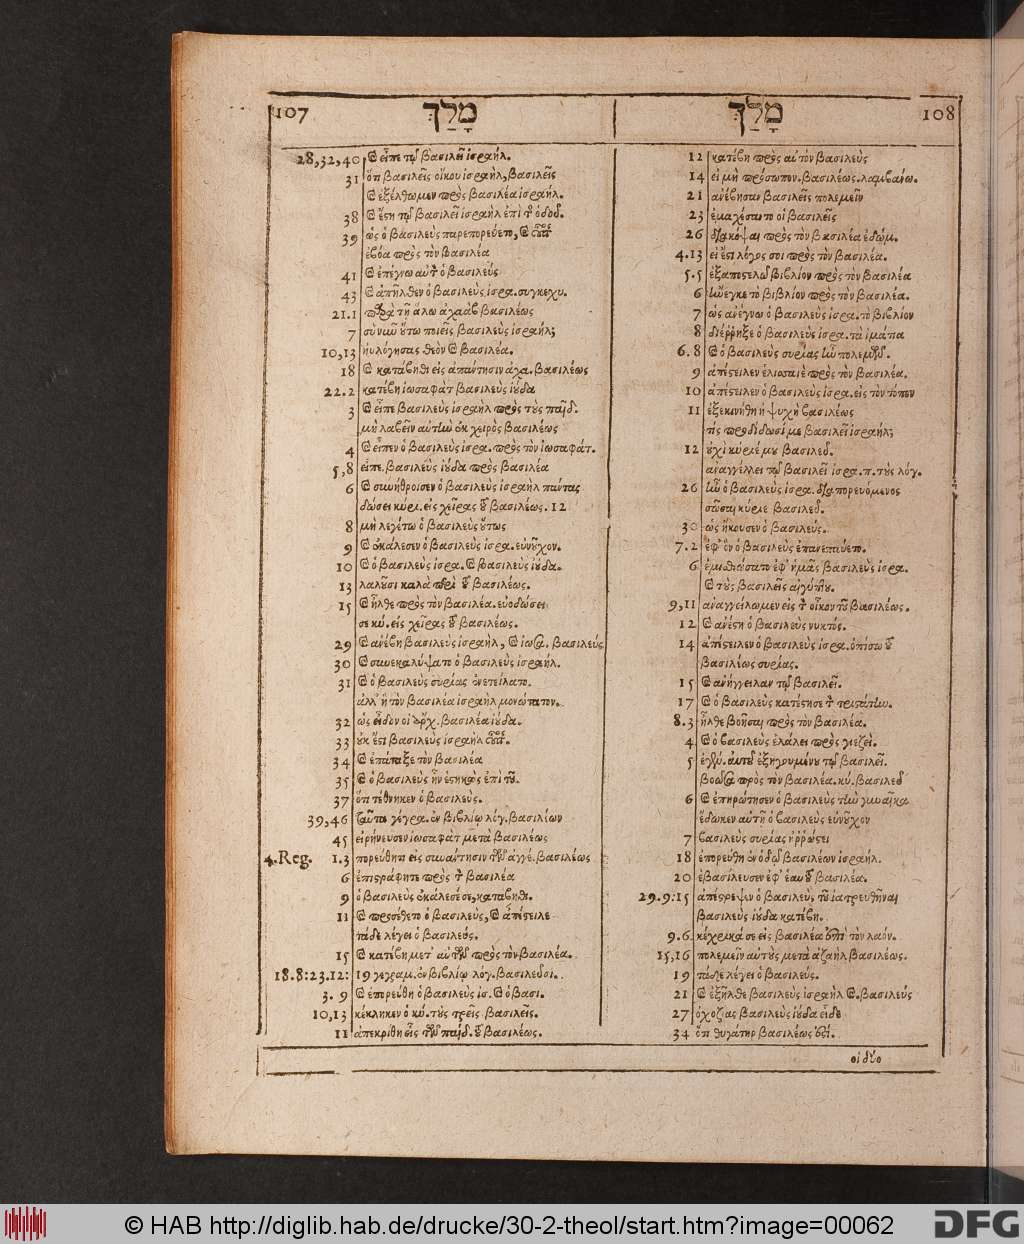 107 מָלַךְ
28,32,40 καὶ εἶπε τῷ βασιλεῖ ἰσραήλ.
31 ὅτι βασιλεῖς οἴκου ἰσραὴλ, βασιλεῖς
καὶ ἐξέλθωμεν πρὸς βασιλέα ἰσραήλ.
38 καὶ ἔστη τῷ βασιλεῖ ἰσραὴλ ἐπὶ τῆς ὁδοῦ.
39 ὡς ὁ βασιλεὺς παρεπορεύετο, καὶ οὗτος
ἐβόα πρὸς τὸν βασιλέα
41 καὶ ἐπέγνω αὐτὸν ὁ βασιλεύς
43 καὶ ἀπῆλθεν ὁ βασιλεὺς ἰσρα. συγκεχυ.
21.1 παρὰ τῇ ἅλω ἀχαὰβ βασιλέως
7 σὺ νῦν οὕτω ποιεῖς βασιλεὺς ἰσραήλ;
10,13 ηὐλόγησας θεὸν καὶ βασιλέα.
18 καὶ κατάβηθι εἰς ἀπάντησιν ἀχα. βασιλέως
22.2 κατέβη ἰωσαφὰτ βασιλεὺς ἰούδα
3 καὶ εἶπε βασιλεὺς ἰσραὴλ πρὸς τοὺς παῖδ.
μὴ λαβεῖν αὐτὴν ἐκ χειρὸς βασιλέως
4 καὶ εἶπεν ὁ βασιλεὺς ἰσρα. πρὸς τὸν ἰωσαφάτ.
5,8 εἶπε. βασιλεὺς ἰούδα πρὸς βασιλέα
6 καὶ συνήθροισεν ὁ βασιλεὺς ἰσραὴλ πάντας
δώσει κύρι. εἰς χεῖρας τοῦ βασιλέως. 12
8 μὴ λεγέτω ὁ βασιλεὺς οὕτως
9 καὶ ἐκάλεσεν ὁ βασιλεὺς ἰσρα. εὐνοῦχον.
10 καὶ ὁ βασιλεὺς ἰσρα. καὶ βασιλεὺς ἰούδα.
13 λαλοῦσι καλὰ περὶ τοῦ βασιλέως.
15 καὶ ἦλθε πρὸς τὸν βασιλέα. εὐοδώσει
σε κύ. εἰς χεῖρας τοῦ βασιλέως.
29 καὶ ἀνέβη βασιλεὺς ἰσραὴλ, καὶ ἰωσα. βασιλεύς
30 καὶ συνεκαλύψατο ὁ βασιλεὺς ἰσραήλ.
31 καὶ ὁ βασιλεὺς συρίας ἐνετείλατο.
ἀλλ' ἢ τὸν βασιλέα ἰσραὴλ μονώτατον.
32 ὡς εἶδον οἱ ἄρχ. βασιλέα ἰούδα.
33 οὐκ ἔστι βασιλεὺς ἰσραὴλ οὗτος.
34 καὶ ἐπάταξε τὸν βασιλέα
35 καὶ ὁ βασιλεὺς ἦν ἑστηκὼς ἐπὶ τοῦ.
37 ὅτι τέθνηκεν ὁ βασιλεύς.
39,46 ταῦτα γέγρα. ἐν βιβλίῳ λόγ. βασιλέων
45 εἰρήνευσεν ἰωσαφὰτ μετὰ βασιλέως
4.Reg. 1.3 πορεύθητι εἰς συνάντησιν τῶν ἀγγέ. βασιλέως
6 ἐπιστράφητε πρὸς τὸν βασιλέα
9 ὁ βασιλεὺς ἐκάλεσέ σε, κατάβηθι.
11 καὶ προσέθετο ὁ βασιλεὺς, καὶ ἀπέστειλε
τάδε λέγει ὁ βασιλεύς.
15 καὶ κατέβη μετ' αὐτοῦ πρὸς τὸν βασιλέα.
18.8:23.12: 19 γεγραμ. ἐν βιβλίῳ λόγ. βασιλεῦσι.
3. 9 καὶ ἐπορεύθη ὁ βασιλεὺς ἰσ. καὶ ὁ βασι.
10,13 κέκληκεν ὁ κύ. τοὺς τρεῖς βασιλεῖς.
11 ἀπεκρίθη εἷς τῶν παίδ. τοῦ βασιλέως.
מָלַךְ 108
12 κατέβη πρὸς αὐτὸν βασιλεὺς
14 εἰ μὴ πρόσωπον. βασιλέως. λαμβάνω.
21 ἀνέβησαν βασιλεῖς πολεμεῖν
23 ἐμαχέσαντο οἱ βασιλεῖς
26 διακόψαι πρὸς τὸν βασιλέα ἐδώμ.
4.13 εἰ ἔστι λόγος σοι πρὸς τὸν βασιλέα.
5.5 ἐξαποστελῶ βιβλίον πρὸς τὸν βασιλέα
6 ἤνεγκε τὸ βιβλίον πρὸς τὸν βασιλέα.
7 ὡς ἀνέγνω ὁ βασιλεὺς ἰσρα. τὸ βιβλίον
8 διέῤῥηξε ὁ βασιλεὺς ἰσρα. τὰ ἱμάτια
6.8 καὶ ὁ βασιλεὺς συρίας ἦν πολεμῶν.
9 ἀπέστειλεν ἑλισαιὲ πρὸς τὸν βασιλέα.
10 ἀπέστειλεν ὁ βασιλεὺς ἰσρα. εἰς τὸν τόπον
11 ἐξεκινήθη ἡ ψυχὴ βασιλέως
τίς προδίδωσί με βασιλεῖ ἰσραήλ;
12 οὐχὶ κύριέ μου βασιλεῦ.
ἀναγγέλλει τῷ βασιλεῖ ἰσρα. π. τοὺς λόγ.
26 ἦν ὁ βασιλεὺς ἰσρα. διαπορευόμενος
σῶσαι κύριε βασιλεῦ.
30 ὡς ἤκουσεν ὁ βασιλεύς.
7.2 ἐφ' ὃν ὁ βασιλεὺς ἐπανεπαύετο.
6 ἐμισθώσατο ἐφ' ἡμᾶς βασιλεὺς ἰσρα.
καὶ τοὺς βασιλεῖς αἰγύπτου.
9,11 ἀναγγείλωμεν εἰς τὸν οἶκον τοῦ βασιλέως.
12 καὶ ἀνέστη ὁ βασιλεὺς νυκτός.
14 ἀπέστειλεν ὁ βασιλεὺς ἰσρα. ὀπίσω τοῦ
βασιλέως συρίας.
15 καὶ ἀνήγγειλαν τῷ βασιλεῖ.
17 καὶ ὁ βασιλεὺς κατέστησε τὸν τριστάτην.
8.3 ἦλθε βοῆσαι πρὸς τὸν βασιλέα.
4 καὶ ὁ βασιλεὺς ἐλάλει πρὸς γιεζεί.
5 ἐγέ. αὐτοῦ ἐξηγουμένου τῷ βασιλεῖ.
βοῶσα πρὸς τὸν βασιλέα. κύ. βασιλεῦ
6 καὶ ἐπηρώτησεν ὁ βασιλεὺς τὴν γυναῖκα
ἔδωκεν αὐτῇ ὁ βασιλεὺς εὐνοῦχον
7 βασιλεὺς συρίας ἠῤῥώστει
18 ἐπορεύθη ἐν ὁδῷ βασιλέων ἰσραήλ.
20 ἐβασίλευσεν ἐφ' ἑαυτοῦ βασιλέα.
29.9:15 ἀπέστρεψεν ὁ βασιλεὺς τοῦ ἰατρευθῆναι
βασιλεὺς ἰούδα κατέβη.
9.6. κέχρικά σε εἰς βασιλέα ἐπὶ τὸν λαόν.
15,16 πολεμεῖν αὐτοὺς μετὰ ἀζαὴλ βασιλέως.
19 τάδε λέγει ὁ βασιλεύς.
21 καὶ ἐξῆλθε βασιλεὺς ἰσραὴλ καὶ. βασιλεύς
27 ὀχοζίας βασιλεὺς ἰούδα εἶδε
34 ὅτι θυγάτηρ βασιλέως ἐστί.
οἱ δύο
© HAB http://diglib.hab.de/drucke/30-2-theol/start.htm?image=00062
DFG